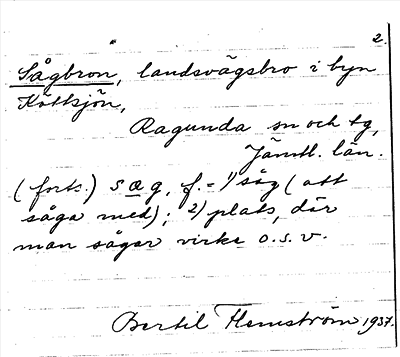 2.
Sågbron, landsvägsbro i byn
Köttsjön,
Ragunda sn och tg,
Jämtl. län.
(forts.) sæg, f. = 1) såg (att
såga med); 2) plats, där
man sågar virke o.s.v.
Bertil Flemström 1937.